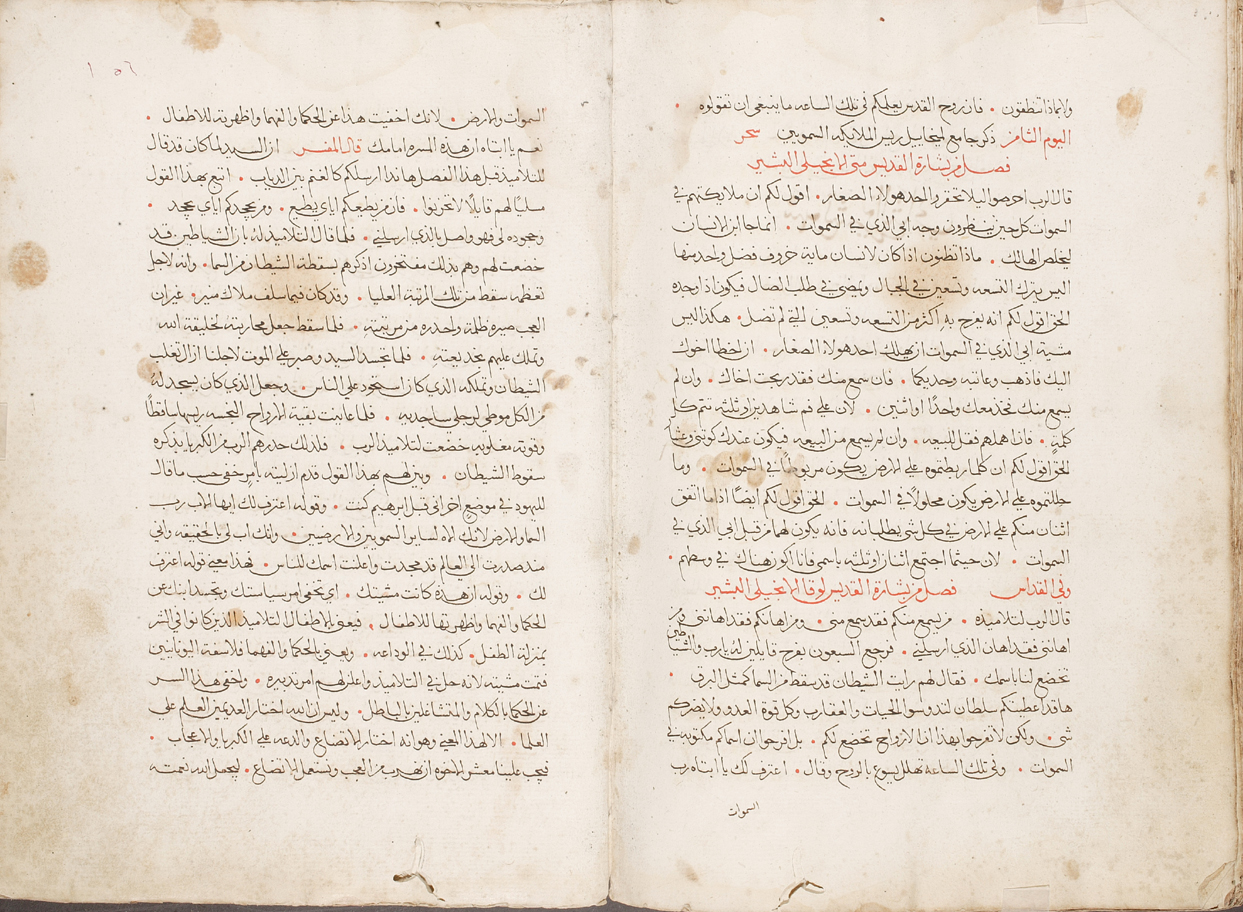 ولا بماذا تنطقون . فان روح القدس يعلمكم في تلك الساعه ما ينبغي ان تقولوه .
اليوم الثامن ذكر جامع لميخاييل ريس الملايكه السموييي سحر
فصل من بشارة القديس متى الانجيلي البشير
قال الرب احرصوا اليلا تحقروا احد هولاء الصغار . اقول لكم ان ملايكتهم في
السموات كل حين ينظرون وجه ابي الذي في السموات . انما جا ابن الانسان
ليخلص الهالك . ماذا تظنون اذا كان لانسان مايه خروف فضل واحد منها
اليس يترك التسعه وتسعين في الجبال ويمضي في طلب الضال فيكون اذا وجده
الحق اقول لكم انه يفرح به اكثر من التسعه وتسعين التي لم تضل . هكذا ليس
مشية ابي الذي في السموات ان يهلك احد هولاء الصغار . ان خطا اخوك
اليك فاذهب وعاتبه وحديكما . فان سمع منك فقد ربحت اخاك . وان لم
يسمع منك فخذ معك واحدًا او اثنين . لان على فم شاهدين او ثلثه تتم كل
كلمةٍ . فاذا اهملهم فقل للبيعه . وان لم يسمع من البيعه فيكون عندك كوثني وعشار
الحق اقول لكم ان كلما ربطتموه على الارض يكون مربوطًا في السموات . وما
حللتموه على الارض يكون محلولًا في السموات . الحق اقول لكم ايضًا اذا ما اتفق
اثنان منكم على الارض في كل شي يطلبانه فانه يكون لهما من قبل ابي الذي في
السموات . لان حيثما اجتمع اثنان او ثلثه باسمي فانا اكون هناك في وسطهم .
وفي القداس فصل من بشارة القديس لوقا الانجيلي البشير
قال الرب لتلاميذه . من يسمع منكم فقد سمع مني . ومن اهانكم فقد اهانني ومن
اهانني فقد اهان الذي ارسلني . فرجع السبعون بفرح قايلين له يارب والشياطين
تخضع لنا باسمك . فقال لهم رايت الشيطان قد سقط من السما كمثل البرق .
ها قد اعطيتكم سلطان لتدوسوا الحيات والعقارب وكل قوة العدو ولا يضركم
شي . ولكن لا تفرحوا بهذا ان الارواح تخضع لكم . بل افرحوا ان اسماكم مكتوبه في
السموات . وفي تلك الساعه تهلل يسوع بالروح وقال . اعترف لك يا ابتاه رب
السموات
١٥٦
السموات والارض . لانك اخفيت هذا عن الحكما والفهما واظهرته للاطفال .
نعم يا ابتاه ان هذه المسره امامك قال المفسر ان السيد لما كان قد قال
للتلاميذ قبل هذا الفصل هاندا ارسلكم كالغنم بين الدياب . اتبع بهذا القول
مسليًا لهم قايلًا لا تحزنوا . فان من يطعكم اياي يطيع . ومن يجحدكم اياي يجحد .
وجحوده لي فهو واصل بالذي ارسلني . فلما قال التلاميذ له بان الشياطين قد
خضعت لهم وهم بذلك مفتخرون اذكرهم بسقطة الشيطان من السما . وانه لاجل
تعظمه سقط من تلك المرتبة العليا . وقد كان فيما سلف ملاك منير . غير ان
العجب صيره ظلمة واحدره من مرتبته . فلما سقط جعل محاربته لخليقة الله
وتملك عليهم بخديعته . فلما تجسد السيد وصبر على الموت لاجلنا ازال تغلب
الشيطان وتملكه الذي كان استحوذ على الناس . وجعل الذي كان يسجد له
من الكل موطي لرجلي ساجديه . فلما عاينت بقية الارواح النجسه ريسها ساقطًا
وقوته مغلوبه خضعت لتلاميذ الرب . فلذلك حدرهم الرب من الكبريا بذكره
سقوط الشيطان . وبين لهم بهذا القول قدم ازليته بامر خفي حسب ما قال
لليهود في موضع اخر اني قبل ابرهيم كنت . وقوله اعترف لك ايها الاب رب
السما والارض لانك الاه لساير السمويين والارضيين . وانك اب لي بالحقيقه واني
منذ صدرت الى العالم قد مجدت واعلنت اسمك للناس . فهذا معنى قوله اعترف
لك . وقوله ان هذه كانت مشيتك . اي تخفي امر سياستك وتجسد ابنك عن
الحكما والفهما واظهرتها للاطفال . فيعني بالاطفال لتلاميذ الذين كانوا في الشر
بمنزلة الطفل . كذلك في الوداعه . ويعني بالحكما والفهما فلاسفة اليونانيين
فتمت مشيته لانه حل في التلاميذ واعلن لهم امر تدبيره . واخفى هذا السر
عن الحكما بالكلام والمتشاغلين بالباطل . وليس ان الله اختار العديمين العلم على
العلما . الا لهذا المعنى وهو انه اختار الاتضاع والدعه على الكبريا والاعجاب .
فيجب علينا معشر الاخوه ان نهرب من العجب ونستعمل الاتضاع . ليجعل الله نعمته